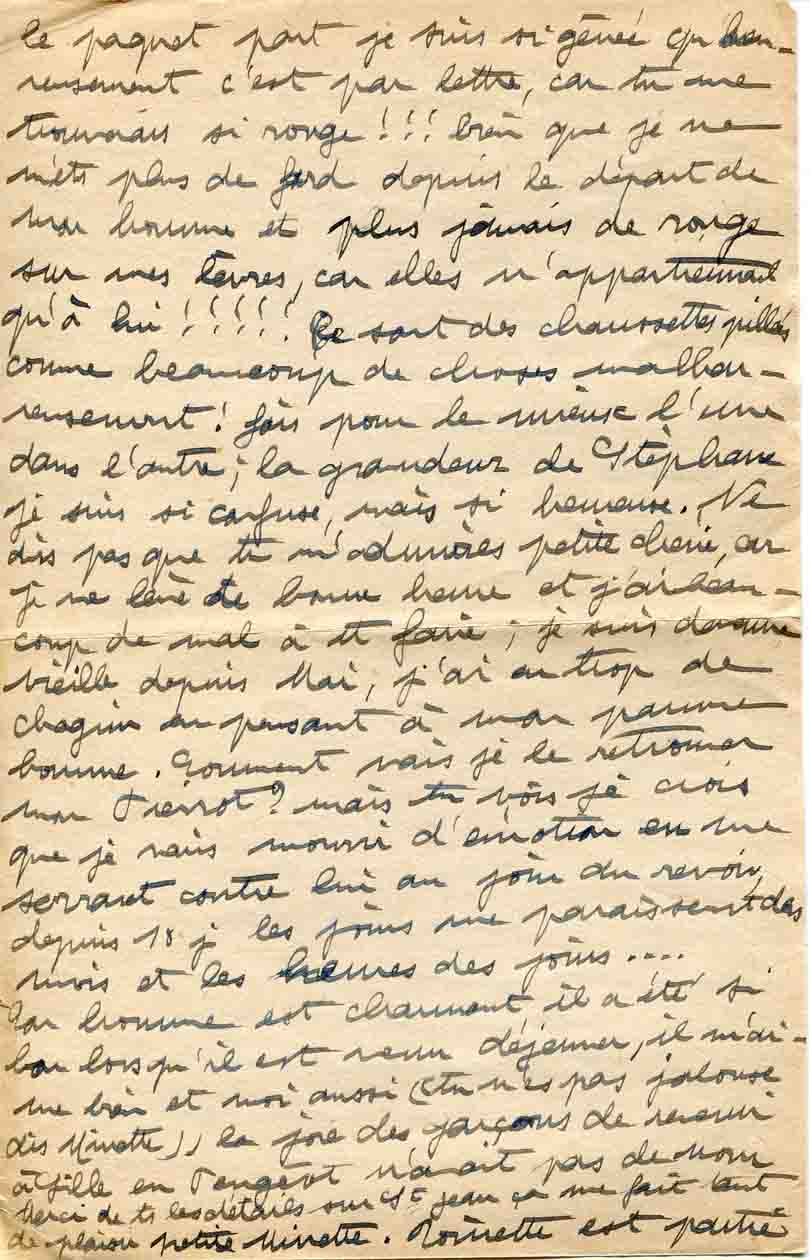 le paquet part je suis si gênée qu'heu-
reusement c'est par lettre, car tu me
trouverais si rouge !!! bien que je ne
mets plus de fard depuis le départ de
mon homme et plus jamais de rouge
sur mes lèvres, car elles n'appartiennent
qu'à lui !!!!! Ce sont des chaussettes pillées
comme beaucoup de choses malheu-
reusement ! fais pour le mieux l'une
dans l'autre ; la grandeur de Stéphane
je suis si confuse, mais si heureuse. Ne
dis pas que tu m'admires petite cherie, car
je me lève de bonne heure et j'ai beau-
coup de mal à le faire ; je suis devenue
vieille depuis Mai, j'ai eu trop de
chagrin en pensant à mon pauvre
homme. Comment vais je le retrouver
mon Pierrot ? mais tu vois je crois
que je vais mourir d'émotion en me
serrant contre lui au jour du revoir,
depuis 18 j les jours me paraissent des
mois et les heures des jours ....
Ton homme est charmant il a été si
bon lorsqu'il est venu déjeuner, il m'ai-
me bien et moi aussi (tu n'es pas jalouse
dis Minette)) la joie des garçons de revenir
à fille en Peugeot n'avait pas de nom
Merci de ts les détails sur St Jean ça me fait tant
de plaisir petite Minette. Poinette est partie